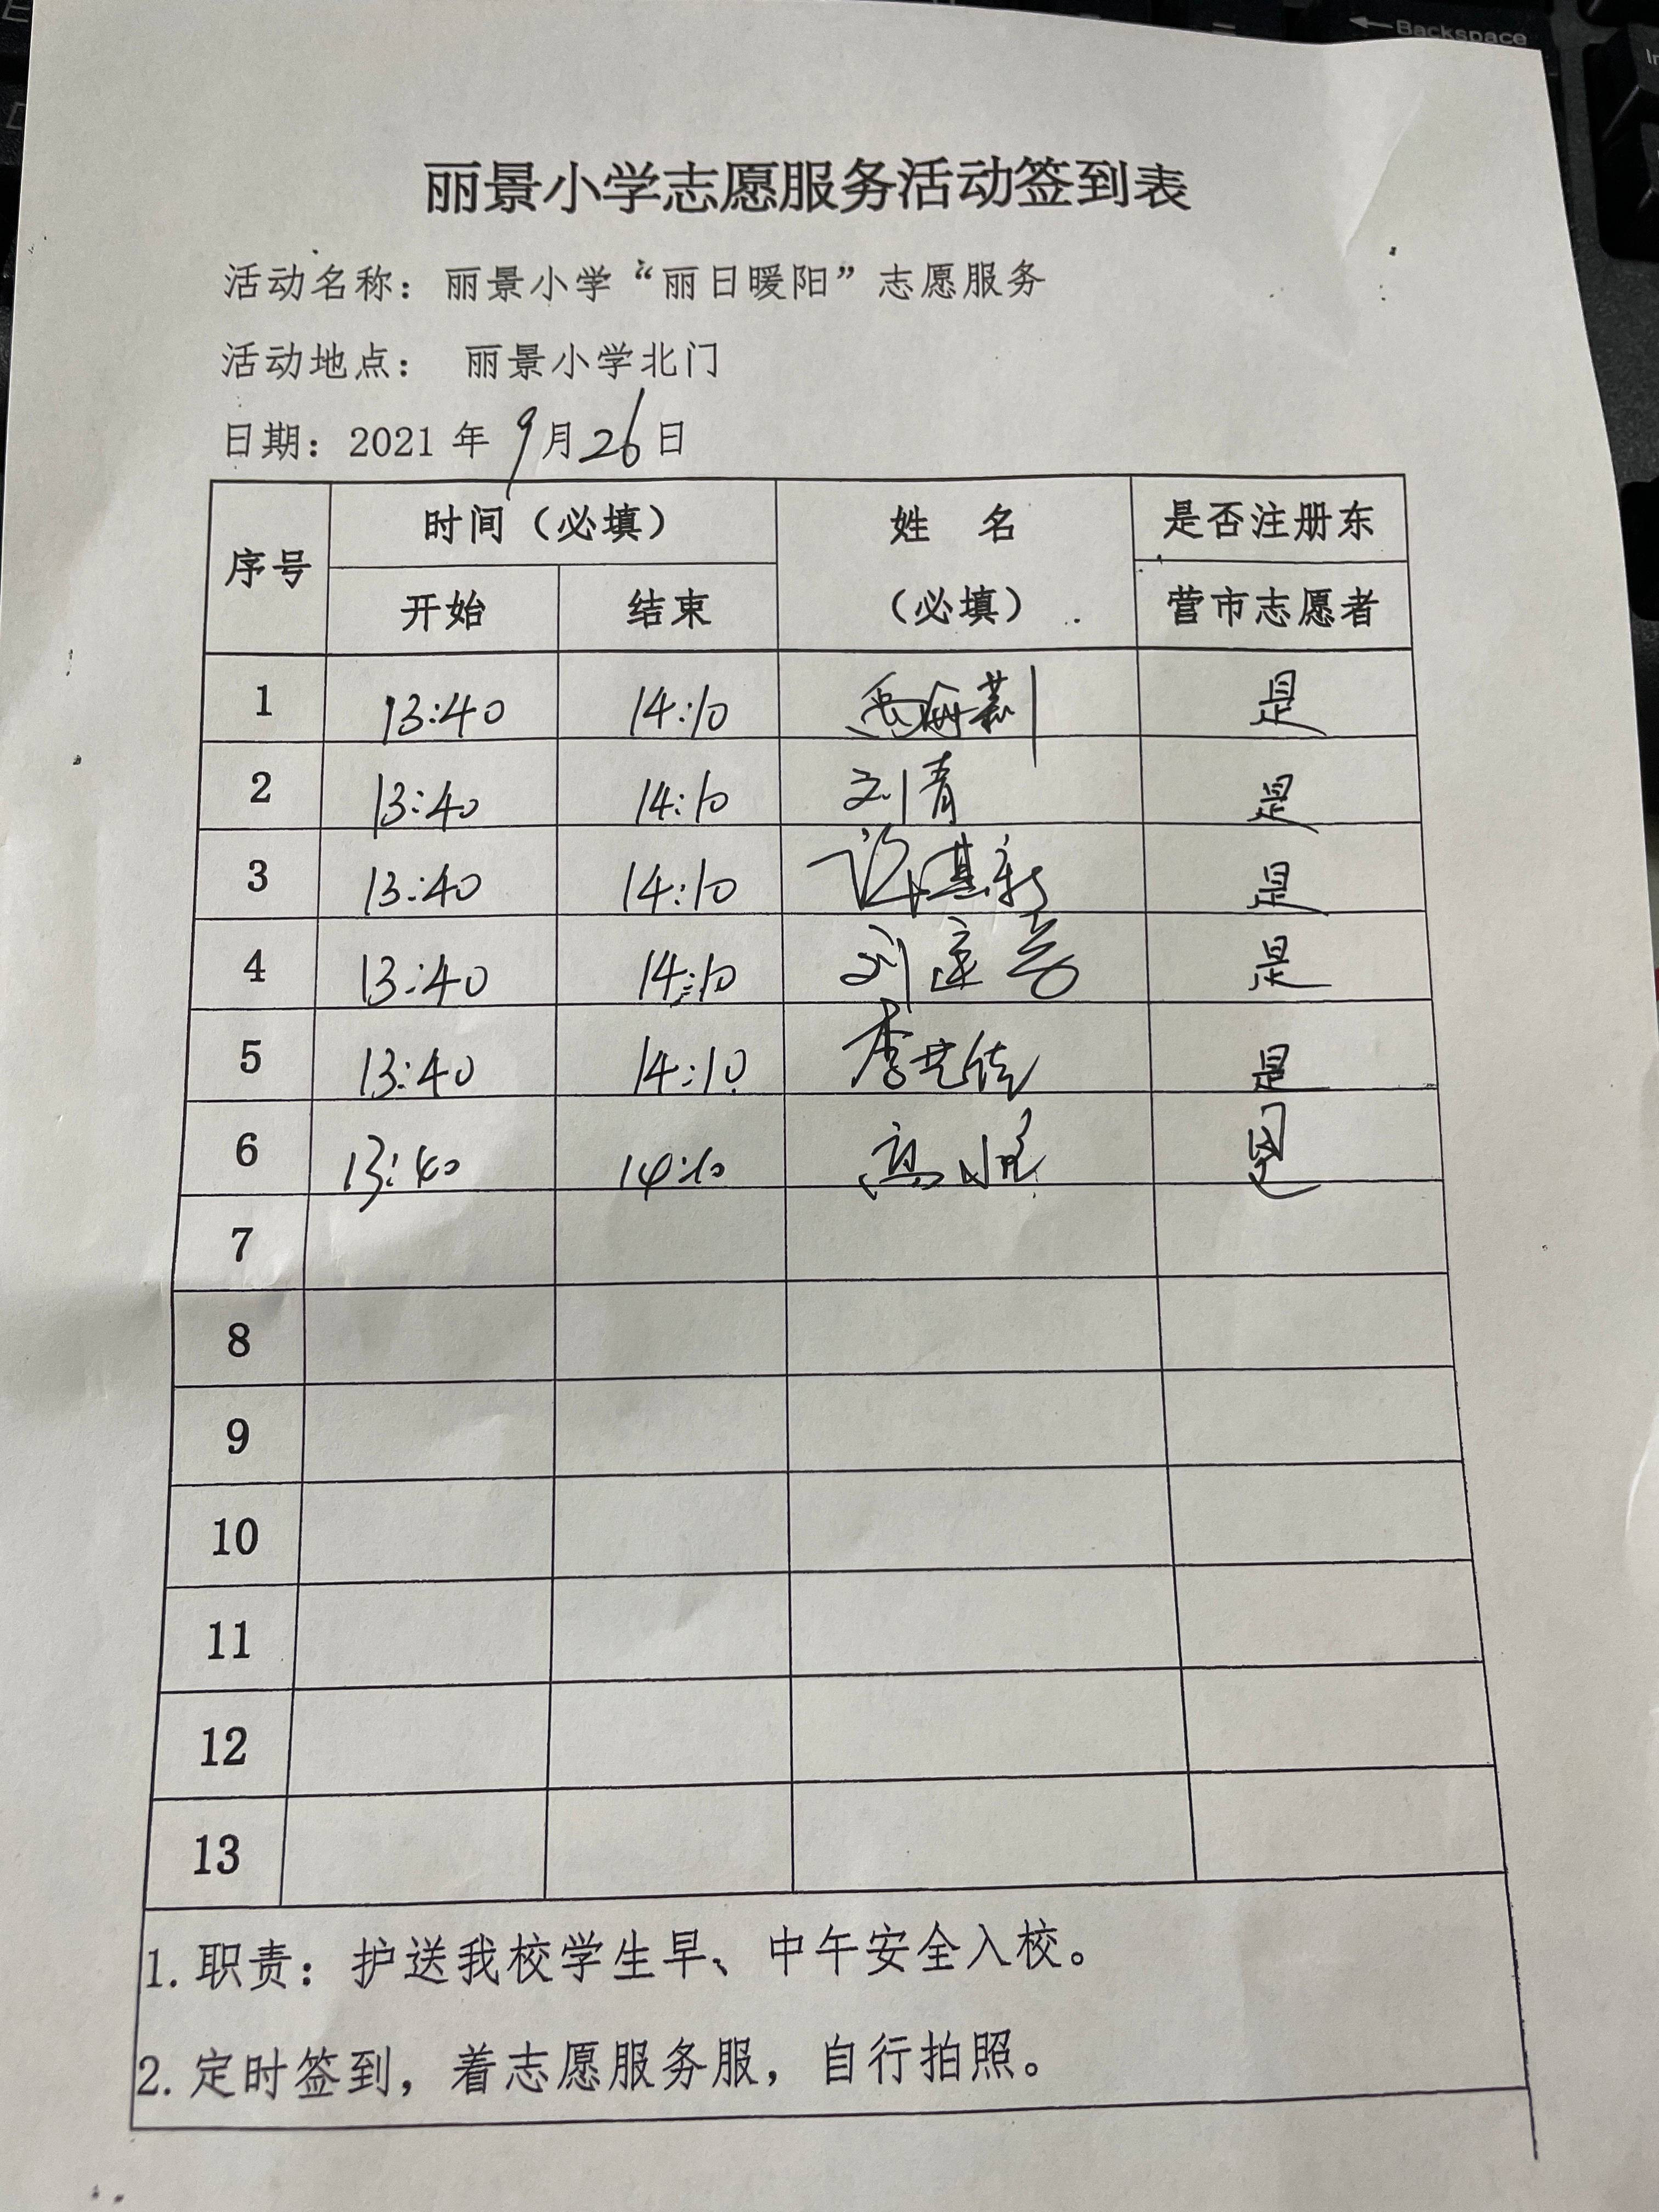 Backspace
丽景小学志愿服务活动签到表
活动名称：丽景小学“丽日暖阳”志愿服务
活动地点： 丽景小学北门
日期：2021 年 9 月 26 日
序号 时间（必填） 姓 名 是否注册东
开始 结束 （必填） 营市志愿者
1 13:40 14:10 是
2 13:40 14:10 刘青 是
3 13:40 14:10 许其新 是
4 13:40 14:10 刘 是
5 13:40 14:10 李 是
6 13:40 14:10 高 是
7
8
9
10
11
12
13
1. 职责：护送我校学生早、中午安全入校。
2. 定时签到，着志愿服务服，自行拍照。